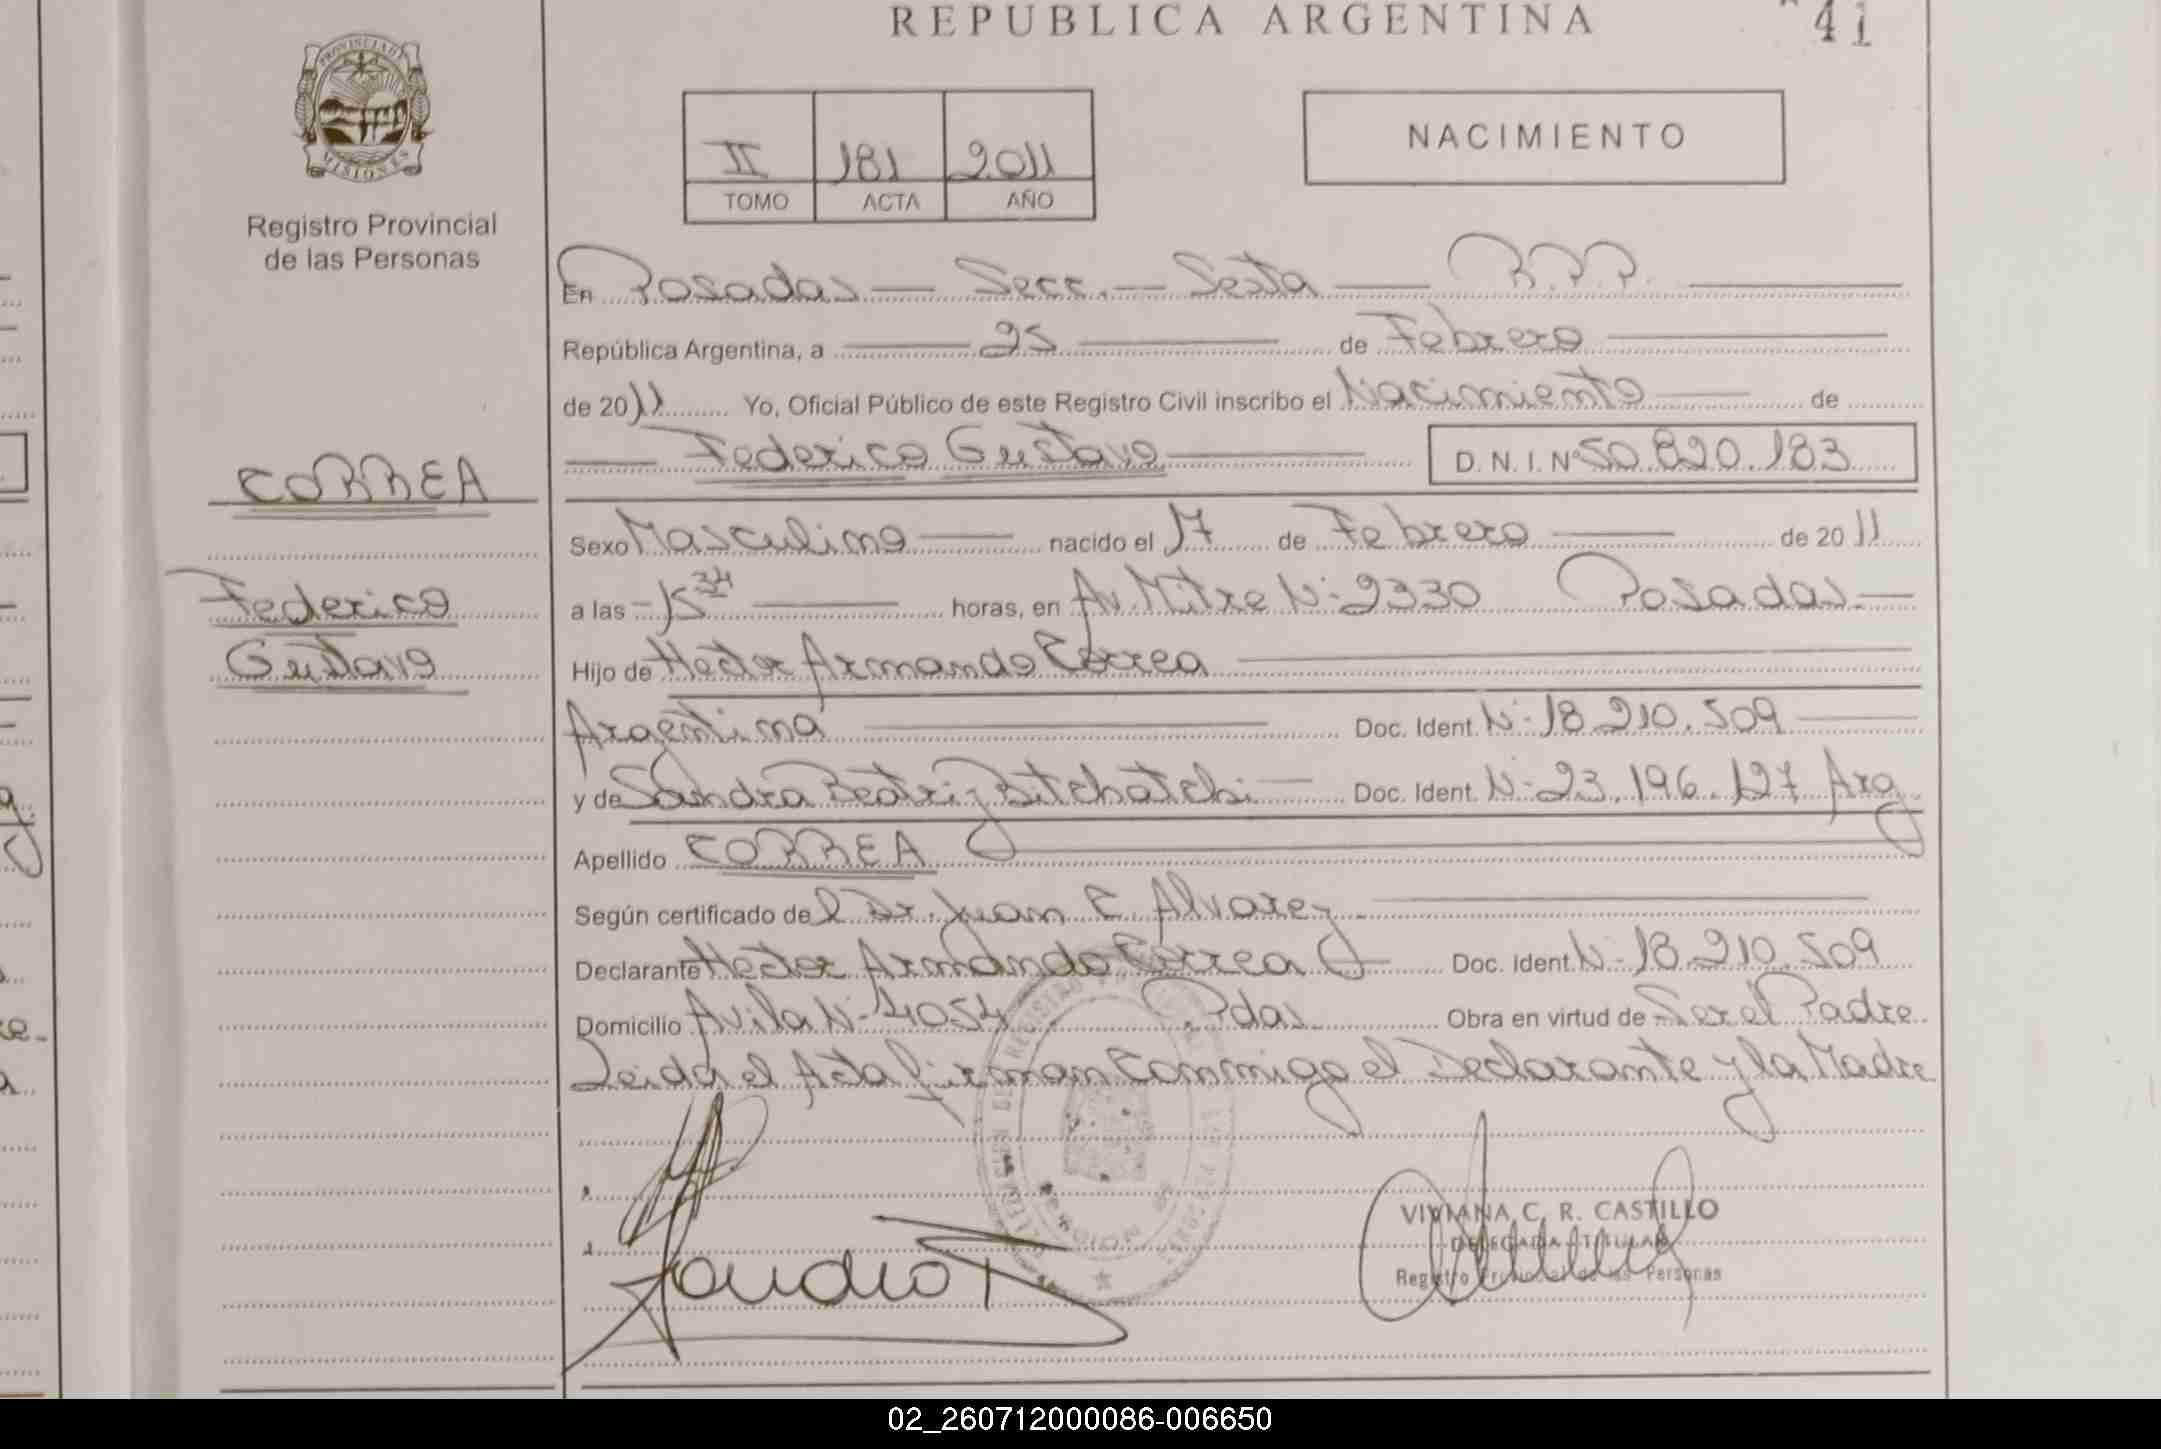 REPUBLICA ARGENTINA
41
PROVINCIA D
MISIONES
Registro Provincial
de las Personas
II 181 2011
TOMO ACTA AÑO
NACIMIENTO
En Posadas — Secc. — Sexta — R.P.P.
República Argentina, a — 25 — de Febrero
de 2011 Yo, Oficial Público de este Registro Civil inscribo el Nacimiento — de
Federico Gustavo — D. N. I. Nº 50.820.183
CORREA
Federico
Gustavo
Sexo Masculino — nacido el 17 de Febrero — de 2011
a las - 15 34 — horas, en Av. Mitre N: 2330 Posadas. —
Hijo de Héctor Armando Correa
Argentina — Doc. Ident. N: 18.210.509
y de Sandra Beatriz Bitchatchi — Doc. Ident. N: 23.196.127 Arg.
Apellido CORREA
Según certificado del Dr. Juan E Alvarez
Declarante Héctor Armando Correa Doc. Ident N- 18.210.509
Domicilio Avila N- 4054 Pdas. Obra en virtud de Ser el Padre
Leida el Acta firman Conmigo el Declarante y la Madre
VIVIANA C. R. CASTILLO
DELEGADA TITULAR
Registro Provincial de las Personas
02_260712000086-006650